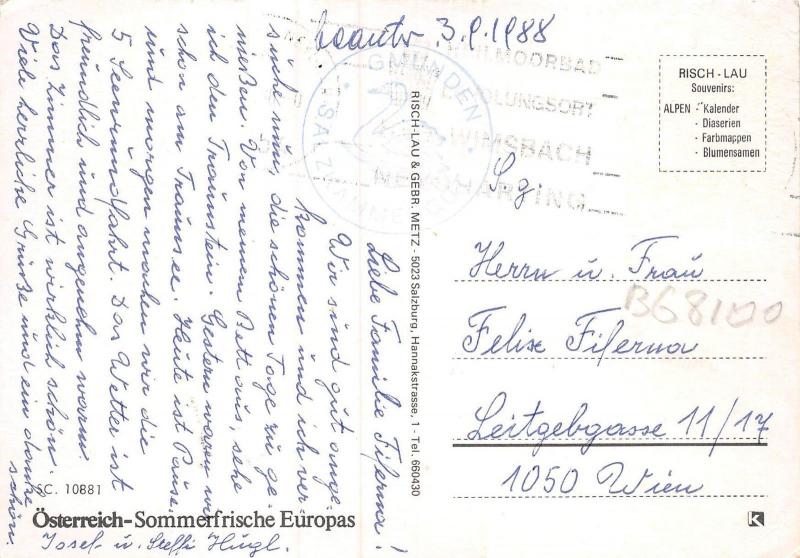 3.9.1988
Liebe Familie Fiferna!
Wir sind gut ange-
kommen und ich ver-
suche nun, die schönen Tage zu ge-
nießen. Von meinem Bett aus, sehe
ich den Traunstein. Gestern waren wir
schon am Traunsee. Heute ist Pause
und morgen machen wir die
5 Seenrundfahrt. Das Wetter ist
freundlich und angenehm warm
Das Zimmer ist wirklich schön.
Viele herrliche Grüße und ein danke
schön.
Josef u. Steffi Hügl.
SC. 10881
Österreich-Sommerfrische Europas
RISCH-LAU & GEBR. METZ - 5023 Salzburg, Hannakstrasse, 1 - Tel. 660430
GMUNDEN
SALZKAMMERGUT
HEILMOORBAD
ERHOLUNGSORT
WIMSBACH
NEYDHARTING
RISCH - LAU
Souvenirs:
ALPEN - Kalender
- Diaserien
- Farbmappen
- Blumensamen
Herrn u. Frau
Felix Fiferna
Leitgebgasse 11/17
1050 Wien
B68100
K